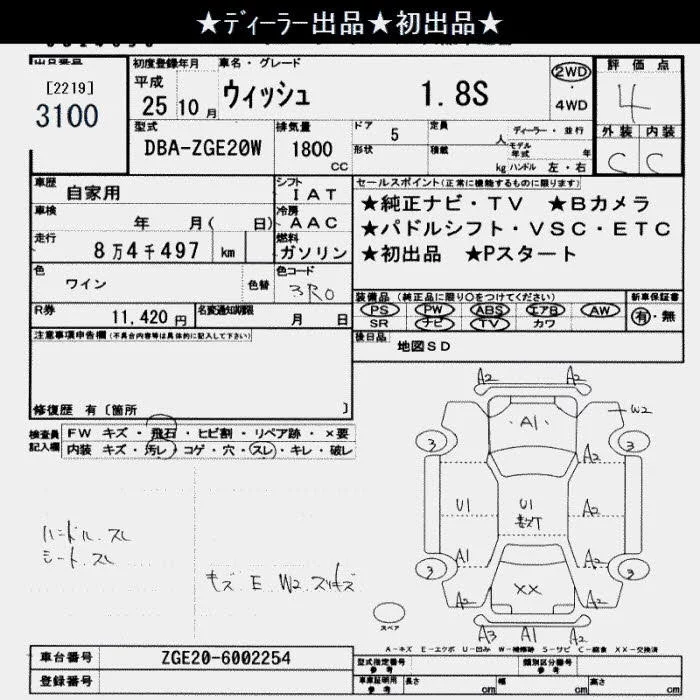 ★ディーラー出品★初出品★
[2219]
3100
初度登録年月
平成
25 10 月
車名・グレード
ウィッシュ 1.8S
2WD
・
4WD
評価点
4
外装 内装
C C
型式
DBA-ZGE20W
排気量
1800
CC
ドア 5
定員 人
ディーラー・並行
形状
積載 kg
モデル年式 年
ハンドル 左・右
車歴 自家用
シフト IAT
車検 年 月( 日)
冷房 AAC
走行 8万4千497 km
燃料 ガソリン
色 ワイン
色替
色コード 3R0
R券 11,420円
名変通知期限 月 日
セールスポイント(正常に機能するものに限ります)
★純正ナビ・TV ★Bカメラ
★パドルシフト・VSC・ETC
★初出品 ★Pスタート
装備品 (純正品に限り○をつけてください)
新車保証書
PS PW ABS エアB AW
SR ナビ TV カワ
有・無
後日品 地図SD
注意事項申告欄(不具合内容等は具体的に記入して下さい)
修復歴 有〔箇所 〕
検査員記入欄
FW キズ・飛石・ヒビ割・リペア跡・×要
内装 キズ・汚レ・コゲ・穴・スレ・キレ・破レ
ハンドル.スレ
シート.スレ
キズ E W2 スリキズ
A2 A2
A1
W2
3 3
A2
U1 U1 A2
A1 A2
3 3
A2 XX A2
スペア
A3 A1 A2
A-キズ E-エクボ U-凹み W-補修跡 S-サビ C-腐食 XX-交換済
車台番号 ZGE20-6002254
登録番号
型式指定番号 参考
類別区分番号 参考
車庫証明用 参考
長さ cm
幅 cm
高さ cm